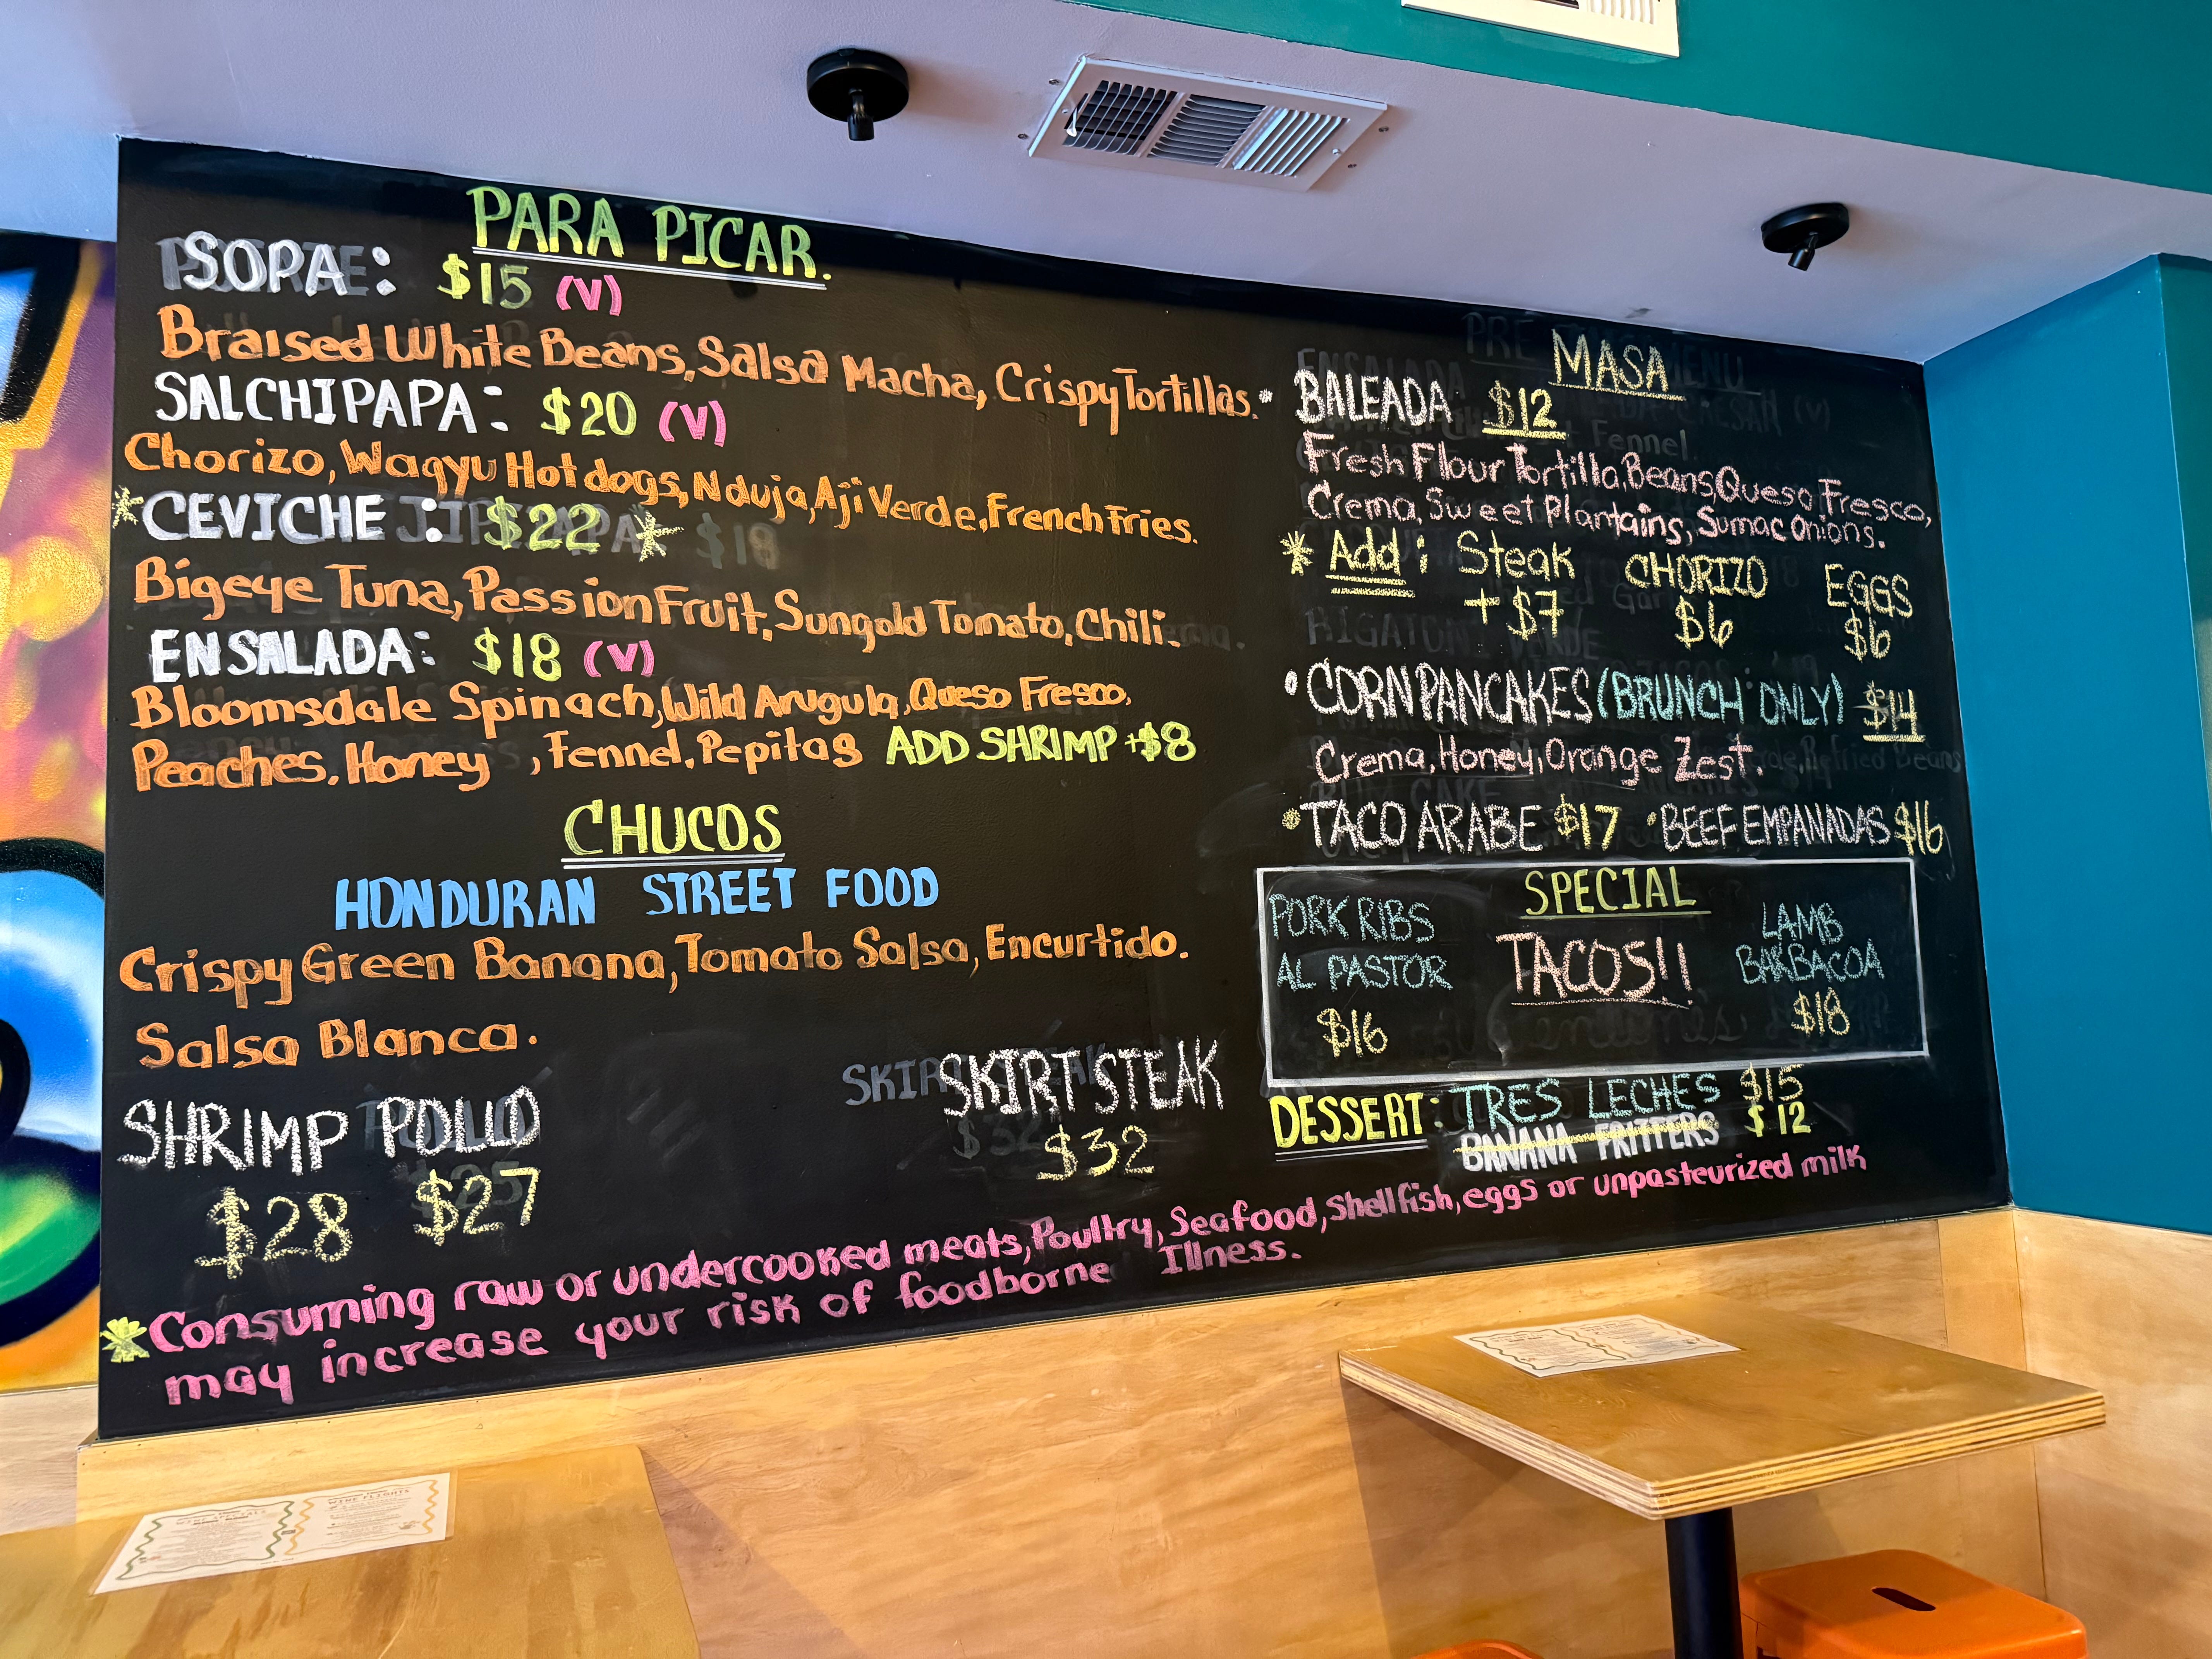 PARA PICAR.
SOPA: $15 (V)
Braised White Beans, Salsa Macha, Crispy Tortillas.
SALCHIPAPA: $20 (V)
Chorizo, Wagyu Hot dogs, Nduja, Aji Verde, French Fries.
*CEVICHE: $22 *
Bigeye Tuna, Passion Fruit, Sungold Tomato, Chili.
ENSALADA: $18 (V)
Bloomsdale Spinach, Wild Arugula, Queso Fresco,
Peaches, Honey , Fennel, Pepitas ADD SHRIMP +$8
CHUCOS
HONDURAN STREET FOOD
Crispy Green Banana, Tomato Salsa, Encurtido.
Salsa Blanca.
SHRIMP POLLO SKIRT STEAK
$28 $27 $32
MASA
• BALEADA $12
Fresh Flour Tortilla, Beans, Queso Fresco,
Crema, Sweet Plantains, Sumac Onions.
* Add: Steak CHORIZO EGGS
+$7 $6 $6
• CORN PANCAKES (BRUNCH ONLY) $14
Crema, Honey, Orange Zest.
• TACO ARABE $17 • BEEF EMPANADAS $16
SPECIAL
TACOS!!
PORK RIBS
AL PASTOR
$16
LAMB
BARBACOA
$18
DESSERT: TRES LECHES $15
BANANA FRITTERS $12
*Consuming raw or undercooked meats, Poultry, Seafood, Shellfish, eggs or unpasteurized milk
may increase your risk of foodborne Illness.